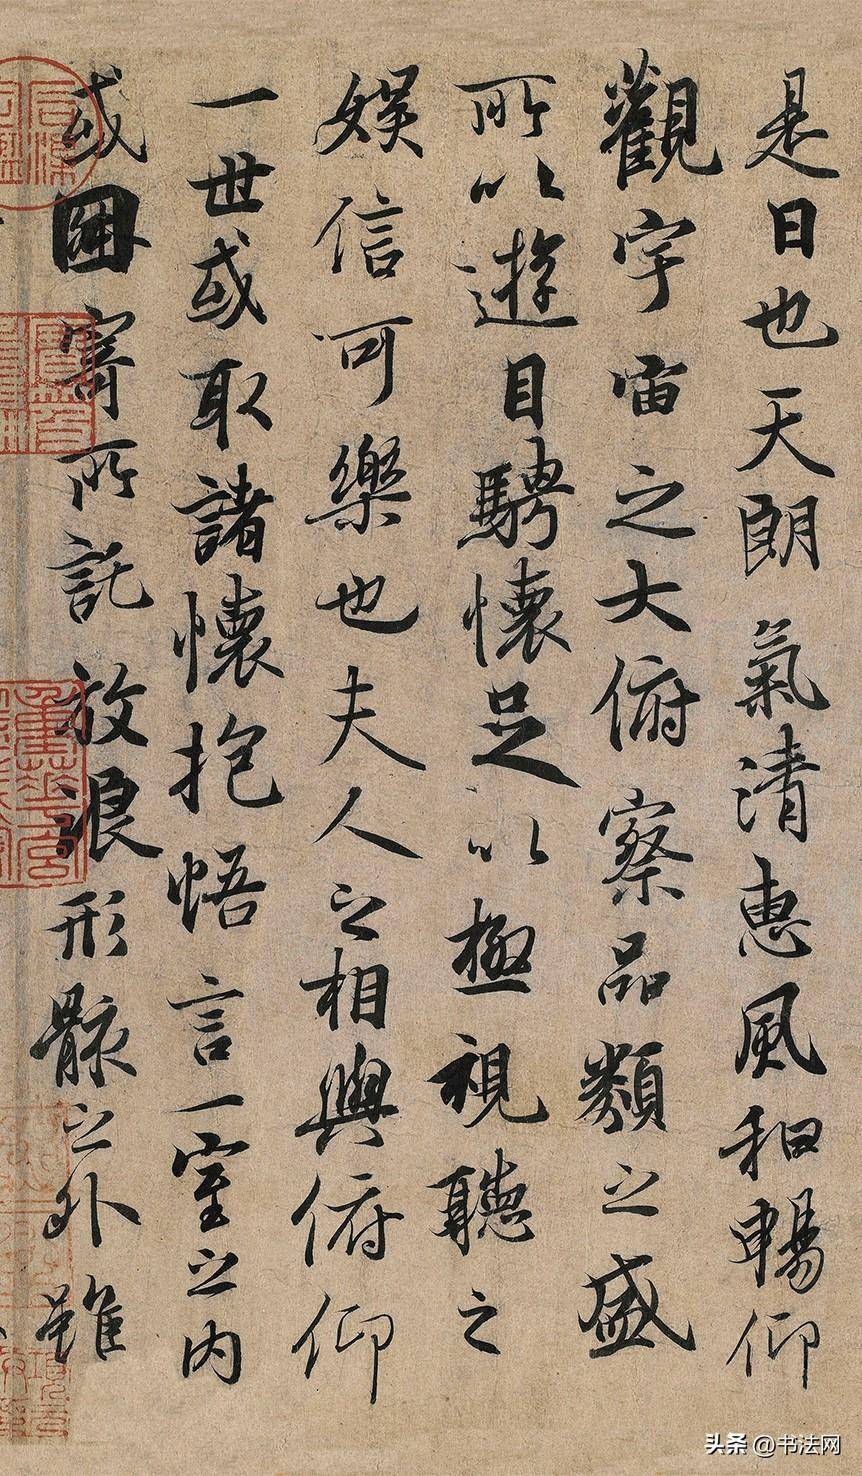 是日也天朗氣清惠風和暢仰
觀宇宙之大俯察品類之盛
所以遊目騁懷足以極視聽之
娛信可樂也夫人之相與俯仰
一世或取諸懷抱悟言一室之內
或因寄所託放浪形骸之外雖
头条 @书法网